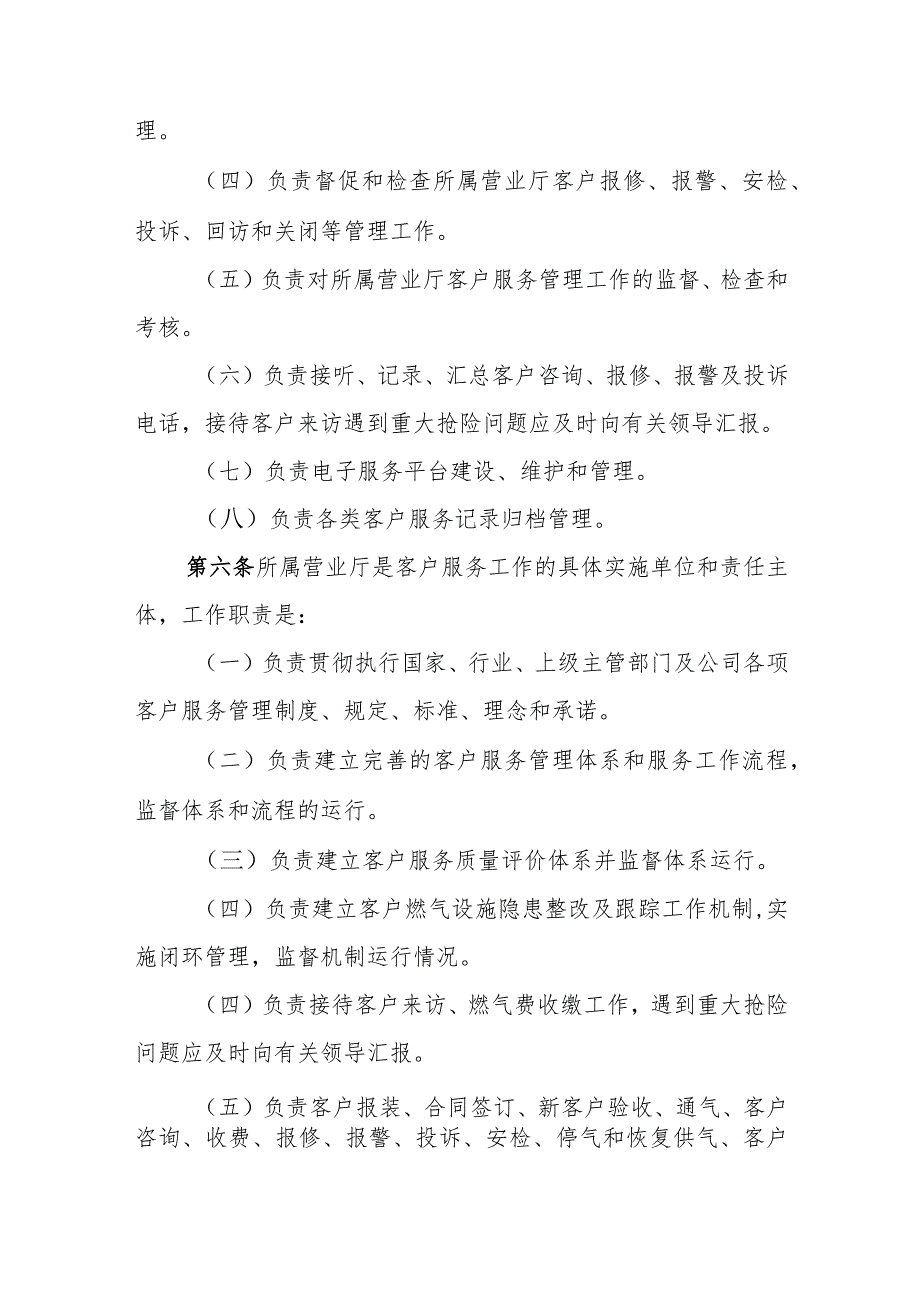 理。
（四）负责督促和检查所属营业厅客户报修、报警、安检、
投诉、回访和关闭等管理工作。
（五）负责对所属营业厅客户服务管理工作的监督、检查和
考核。
（六）负责接听、记录、汇总客户咨询、报修、报警及投诉
电话，接待客户来访遇到重大抢险问题应及时向有关领导汇报。
（七）负责电子服务平台建设、维护和管理。
（八）负责各类客户服务记录归档管理。
第六条所属营业厅是客户服务工作的具体实施单位和责任主
体，工作职责是：
（一）负责贯彻执行国家、行业、上级主管部门及公司各项
客户服务管理制度、规定、标准、理念和承诺。
（二）负责建立完善的客户服务管理体系和服务工作流程，
监督体系和流程的运行。
（三）负责建立客户服务质量评价体系并监督体系运行。
（四）负责建立客户燃气设施隐患整改及跟踪工作机制,实
施闭环管理，监督机制运行情况。
（四）负责接待客户来访、燃气费收缴工作，遇到重大抢险
问题应及时向有关领导汇报。
（五）负责客户报装、合同签订、新客户验收、通气、客户
咨询、收费、报修、报警、投诉、安检、停气和恢复供气、客户